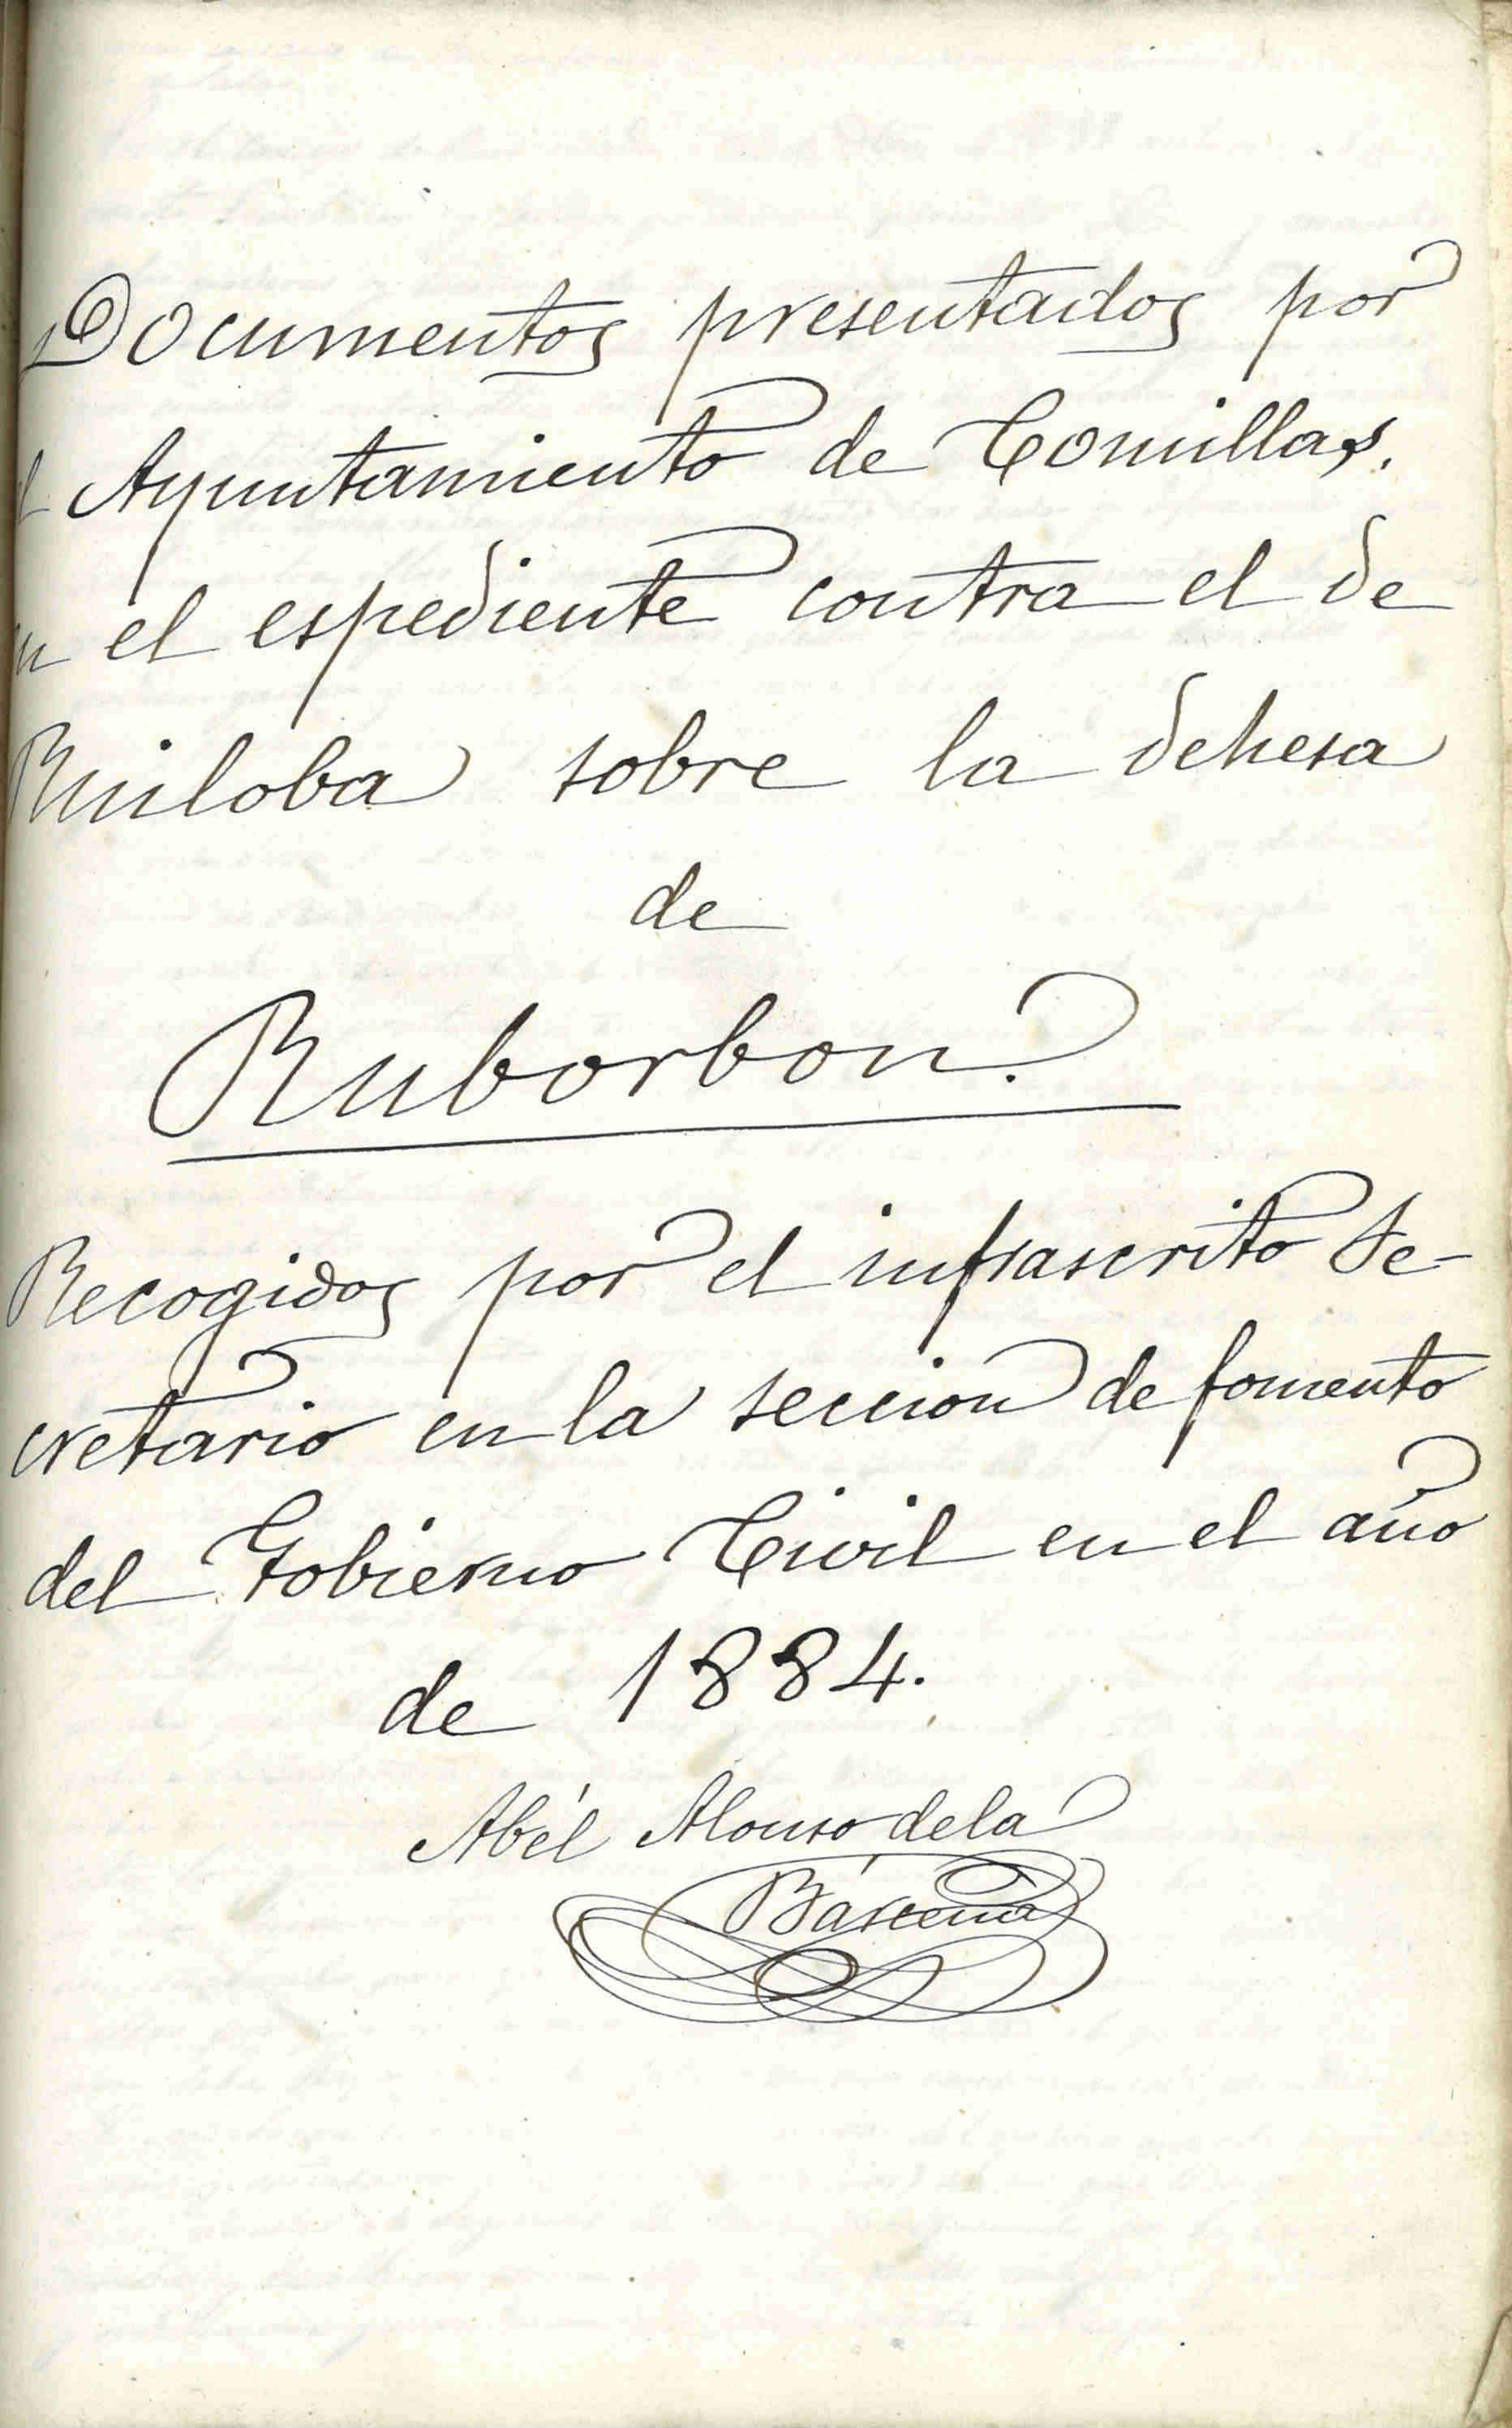 Documentos presentados por
el Ayuntamiento de Comillas.
en el espediente contra el de
Ruiloba sobre la dehesa
de
Ruborbon.
Recogidos por el infrascrito Se-
cretario en la seccion de fomento
del Gobierno Civil en el año
de 1884.
Abél Alonso de la
Bárcena